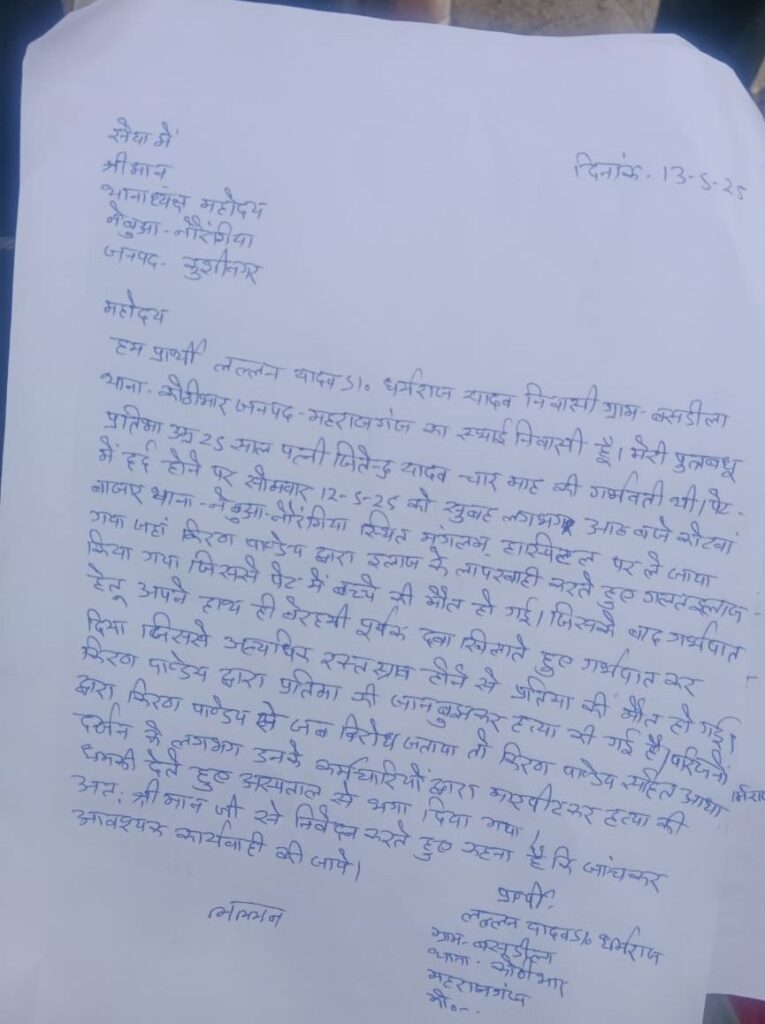 सेवा में
दिनांक- 13-5-25
श्रीमान
थानाध्यक्ष महोदय
नेबुआ-नौरंगिया
जनपद- कुशीनगर
महोदय
हम प्रार्थी लल्लन यादव S/o धर्मराज यादव निवासी ग्राम-बसडीला
थाना-कोठीभार जनपद-महराजगंज का स्थाई निवासी हूँ। मेरी पुत्रबधू
प्रतिमा उम्र 25 साल पत्नी जितेन्द्र यादव चार माह की गर्भवती थी। पेट-
में दर्द होने पर सोमवार 12-5-25 को सुबह लगभग आठ बजे कोटवां
बाजार थाना-नेबुआ-नौरंगिया स्थित मंगलम हास्पिटल पर ले जाया
गया जहां किरण पाण्डेय द्वारा इलाज के लापरवाही करते हुए गलत इलाज-
किया गया जिससे पेट में बच्चे की मौत हो गई। जिसके बाद गर्भपात
हेतू अपने हाथ ही बेरहमी पूर्वक दवा खिलाते हुए गर्भपात कर
दिया जिससे अत्यधिक रक्त स्राव होने से प्रतिमा की मौत हो गई।
किरण पाण्डेय द्वारा प्रतिमा की जानबुझकर हत्या की गई है। परिजनों
द्वारा किरण पाण्डेय से जब विरोध जताया तो किरण पाण्डेय सहित आधा
दर्जन के लगभग उनके कर्मचारियों द्वारा मारपीटकर हत्या की
धमकी देते हुए अस्पताल से भगा दिया गया।
अत: श्रीमान जी से निवेदन करते हुए कहना है कि जांचकर
आवश्यक कार्यवाही की जाये।
प्रार्थी.
लल्लन यादव S/o धर्मराज
ग्राम-बसडीला
थाना-कोठीभार
महराजगंज
मो०--
लल्लन